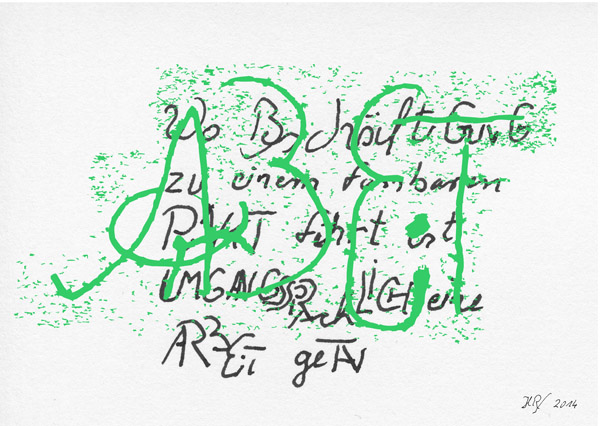 Wo BeschäftiGunG
zu einem fassbaren
PUNKT führt ist
UMGANGSSPRAchLiCH eine
ARBEiT geTAN
2014